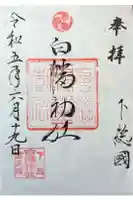 奉拝
下総國
白幡神社
令和五年二月十九日